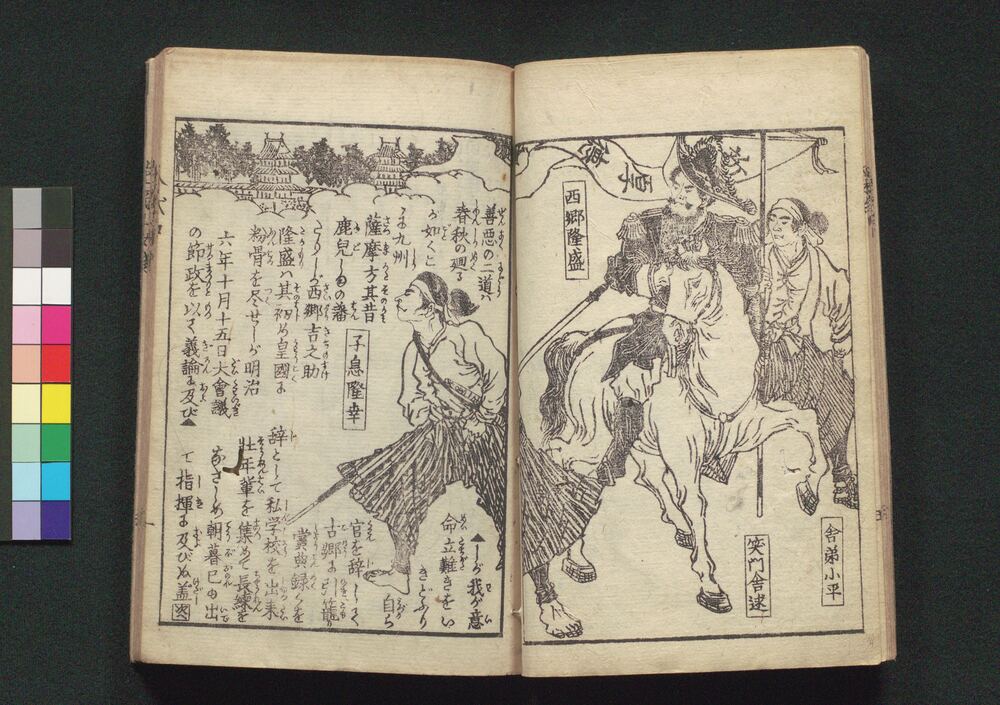 西郷隆盛
舎弟小平
笑門舎逮
子息隆幸
善悪の二道ハ
春秋の廻る
が如くこ
に九州
薩摩方其昔
鹿児しまの藩
たりし西郷吉之助
隆盛ハ其初め皇國に
粉骨を尽せしが明治
六年十月十五日大會議
の節政を以て義論に及び▲
▲しが我が意
命立難きをい
きどふり
自ら
官を辞して
古郷に引籠り
賞典録を
辞として私学校を出来
壮年輩を集めて長練を
なさしめ朝暮已の出
て指揮に及びぬ蓋